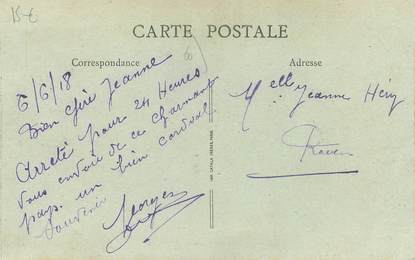 15-€
CARTE POSTALE
Correspondance
Adresse
6/6/18
Bien chère Jeanne
Arrêté pour 24 Heures
Vous envoie de ce charmant
pays un bien cordial
Souvenir
Georges
Melle Jeanne Héry
Rouen